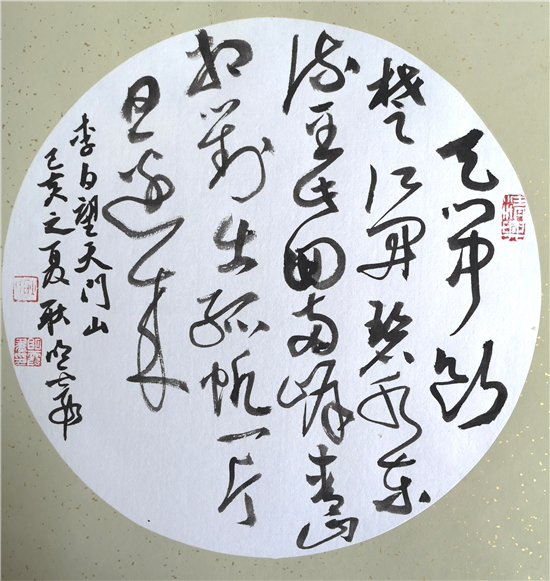 天門中斷
楚江開碧水東
流至此回兩岸青山
相對出孤帆一片
日邊來
李白望天門山
己亥之夏 耿